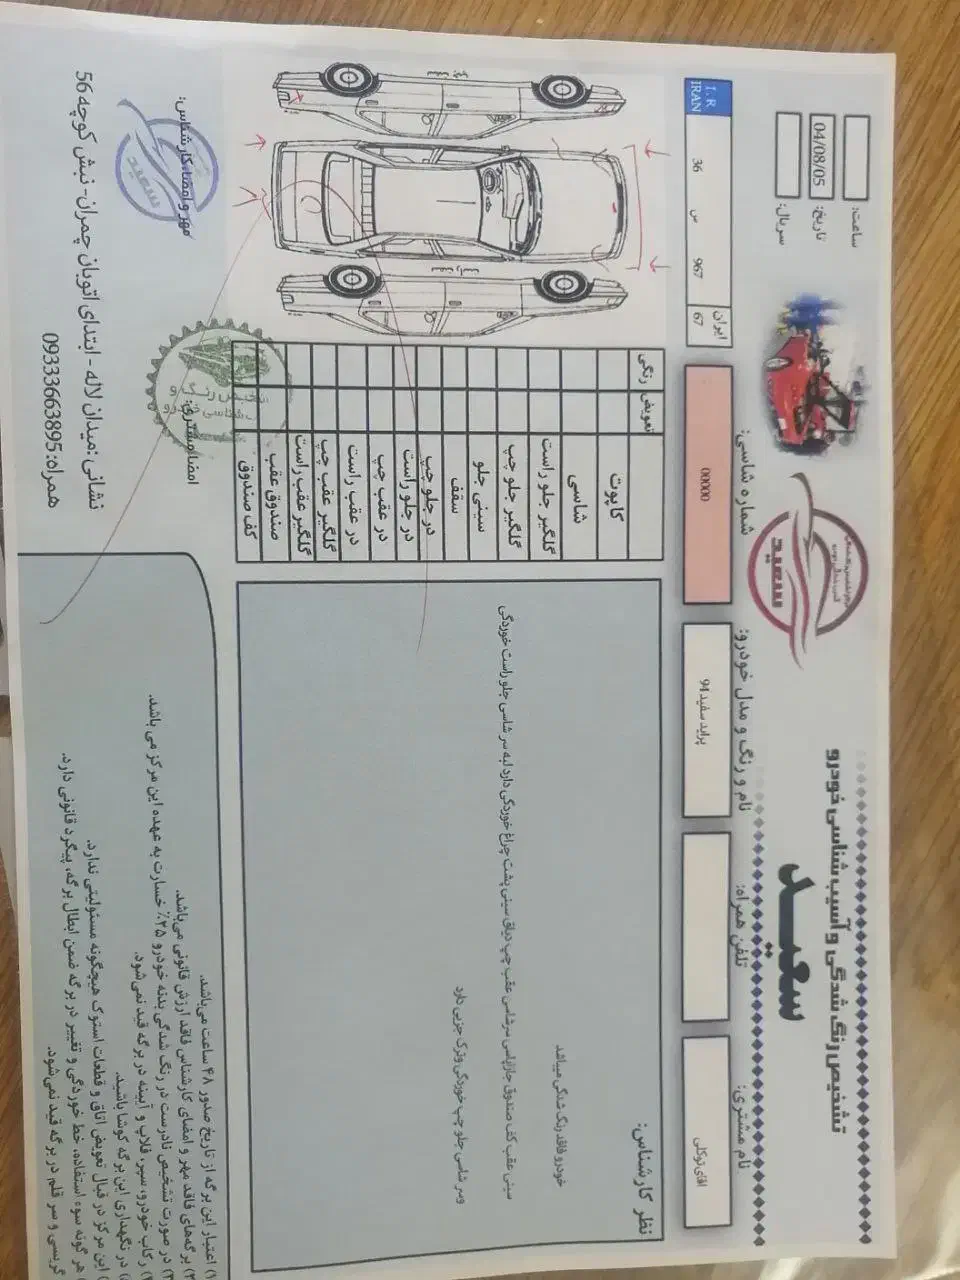 تشخیص رنگ شدگی و آسیب شناسی خودرو
سعید
ساعت:
تاریخ: 04/08/05
سریال:
نام مشتری: اقای توکلی
تلفن همراه:
نام و رنگ و مدل خودرو: پراید سفید 94
شماره شاسی: 00000
I.R
IRAN
36 س 967
ایران
67
سعید
نظر کارشناس:
خودرو فاقد رنگ شدگی میباشد
سینی عقب کف صندوق جازاپاسی سرشاسی عقب چپ دیاق سینی پشت چراغ خوردگی دارد لبه سر شاسی جلو راست خوردگی
وسر شاسی جلو چپ خوردگی وترک جزیی دارد
رنگی
تعویض
کاپوت
شاسی
گلگیر جلو راست
گلگیر جلو چپ
سینی جلو
سقف
در جلو چپ
در جلو راست
در عقب چپ
در عقب راست
گلگیر عقب چپ
گلگیر عقب راست
صندوق عقب
کف صندوق
۱) اعتبار این برگه از تاریخ صدور ۴۸ ساعت می‌باشد.
برگه‌های فاقد مهر و امضای کارشناس فاقد ارزش قانونی می‌باشد.
در صورت تشخیص نادرست در رنگ شدگی بدنه خودرو ۲۵٪ خسارت به عهده این مرکز می باشد.
رکاب خودرو، سپر، قلاب و آیینه در برگه قید نمی‌شود.
در نگهداری این برگه کوشا باشید.
این مرکز در قبال تعویض اتاق و قطعات استوک هیچگونه مسئولیتی ندارد.
هر گونه سوء استفاده، خط خوردگی و تغییر در برگه ضمن ابطال برگه، پیگرد قانونی دارد.
گریسی و سر قلم در برگه قید نمی‌شود.
مهر و امضاء کارشناس:
سعید
امضا مشتری:
نشانی: میدان لاله - ابتدای اتوبان چمران - نبش کوچه 56
همراه: 09333663895